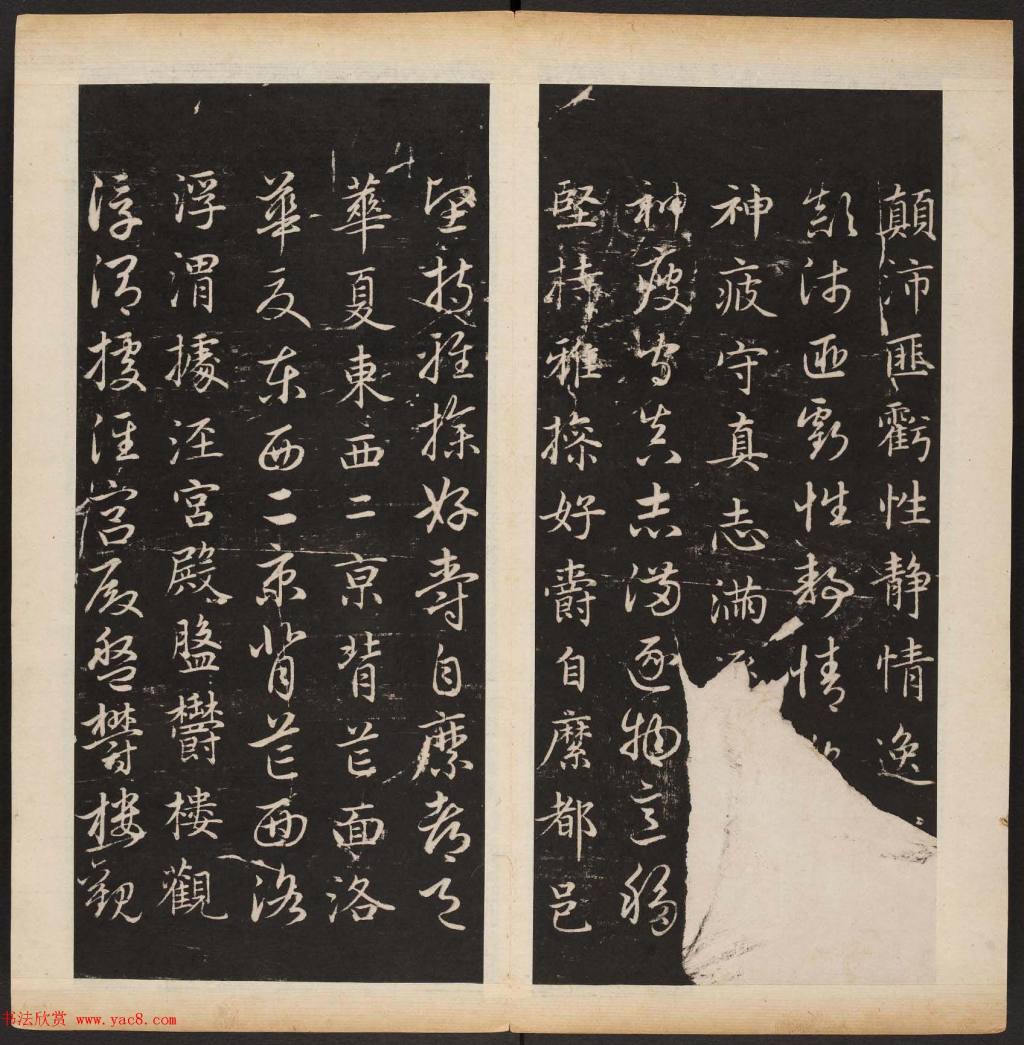 顛沛匪虧性静情逸
顛沛匪虧性静情
神疲守真志滿
神疲守真志滿逐物意移
堅持雅操好爵自縻都邑
堅持雅操好爵自縻都邑
華夏東西二京背芒面洛
華夏東西二京背芒面洛
浮渭據涇宮殿盤鬱樓觀
浮渭據涇宮殿盤鬱樓觀
书法欣赏 www.yac8.com